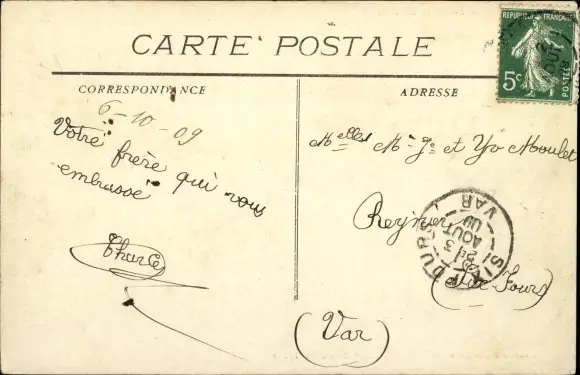 CARTE POSTALE
CORRESPONDANCE
ADRESSE
RÉPUBLIQUE FRANÇAISE
5c
POSTES
6-10-09
Votre frère qui vous
embrasse
Melles M. J. et Yv Moulet
Reynier
SIX FOURS
3
AOUT
09
VAR
(Six Fours)
(Var)